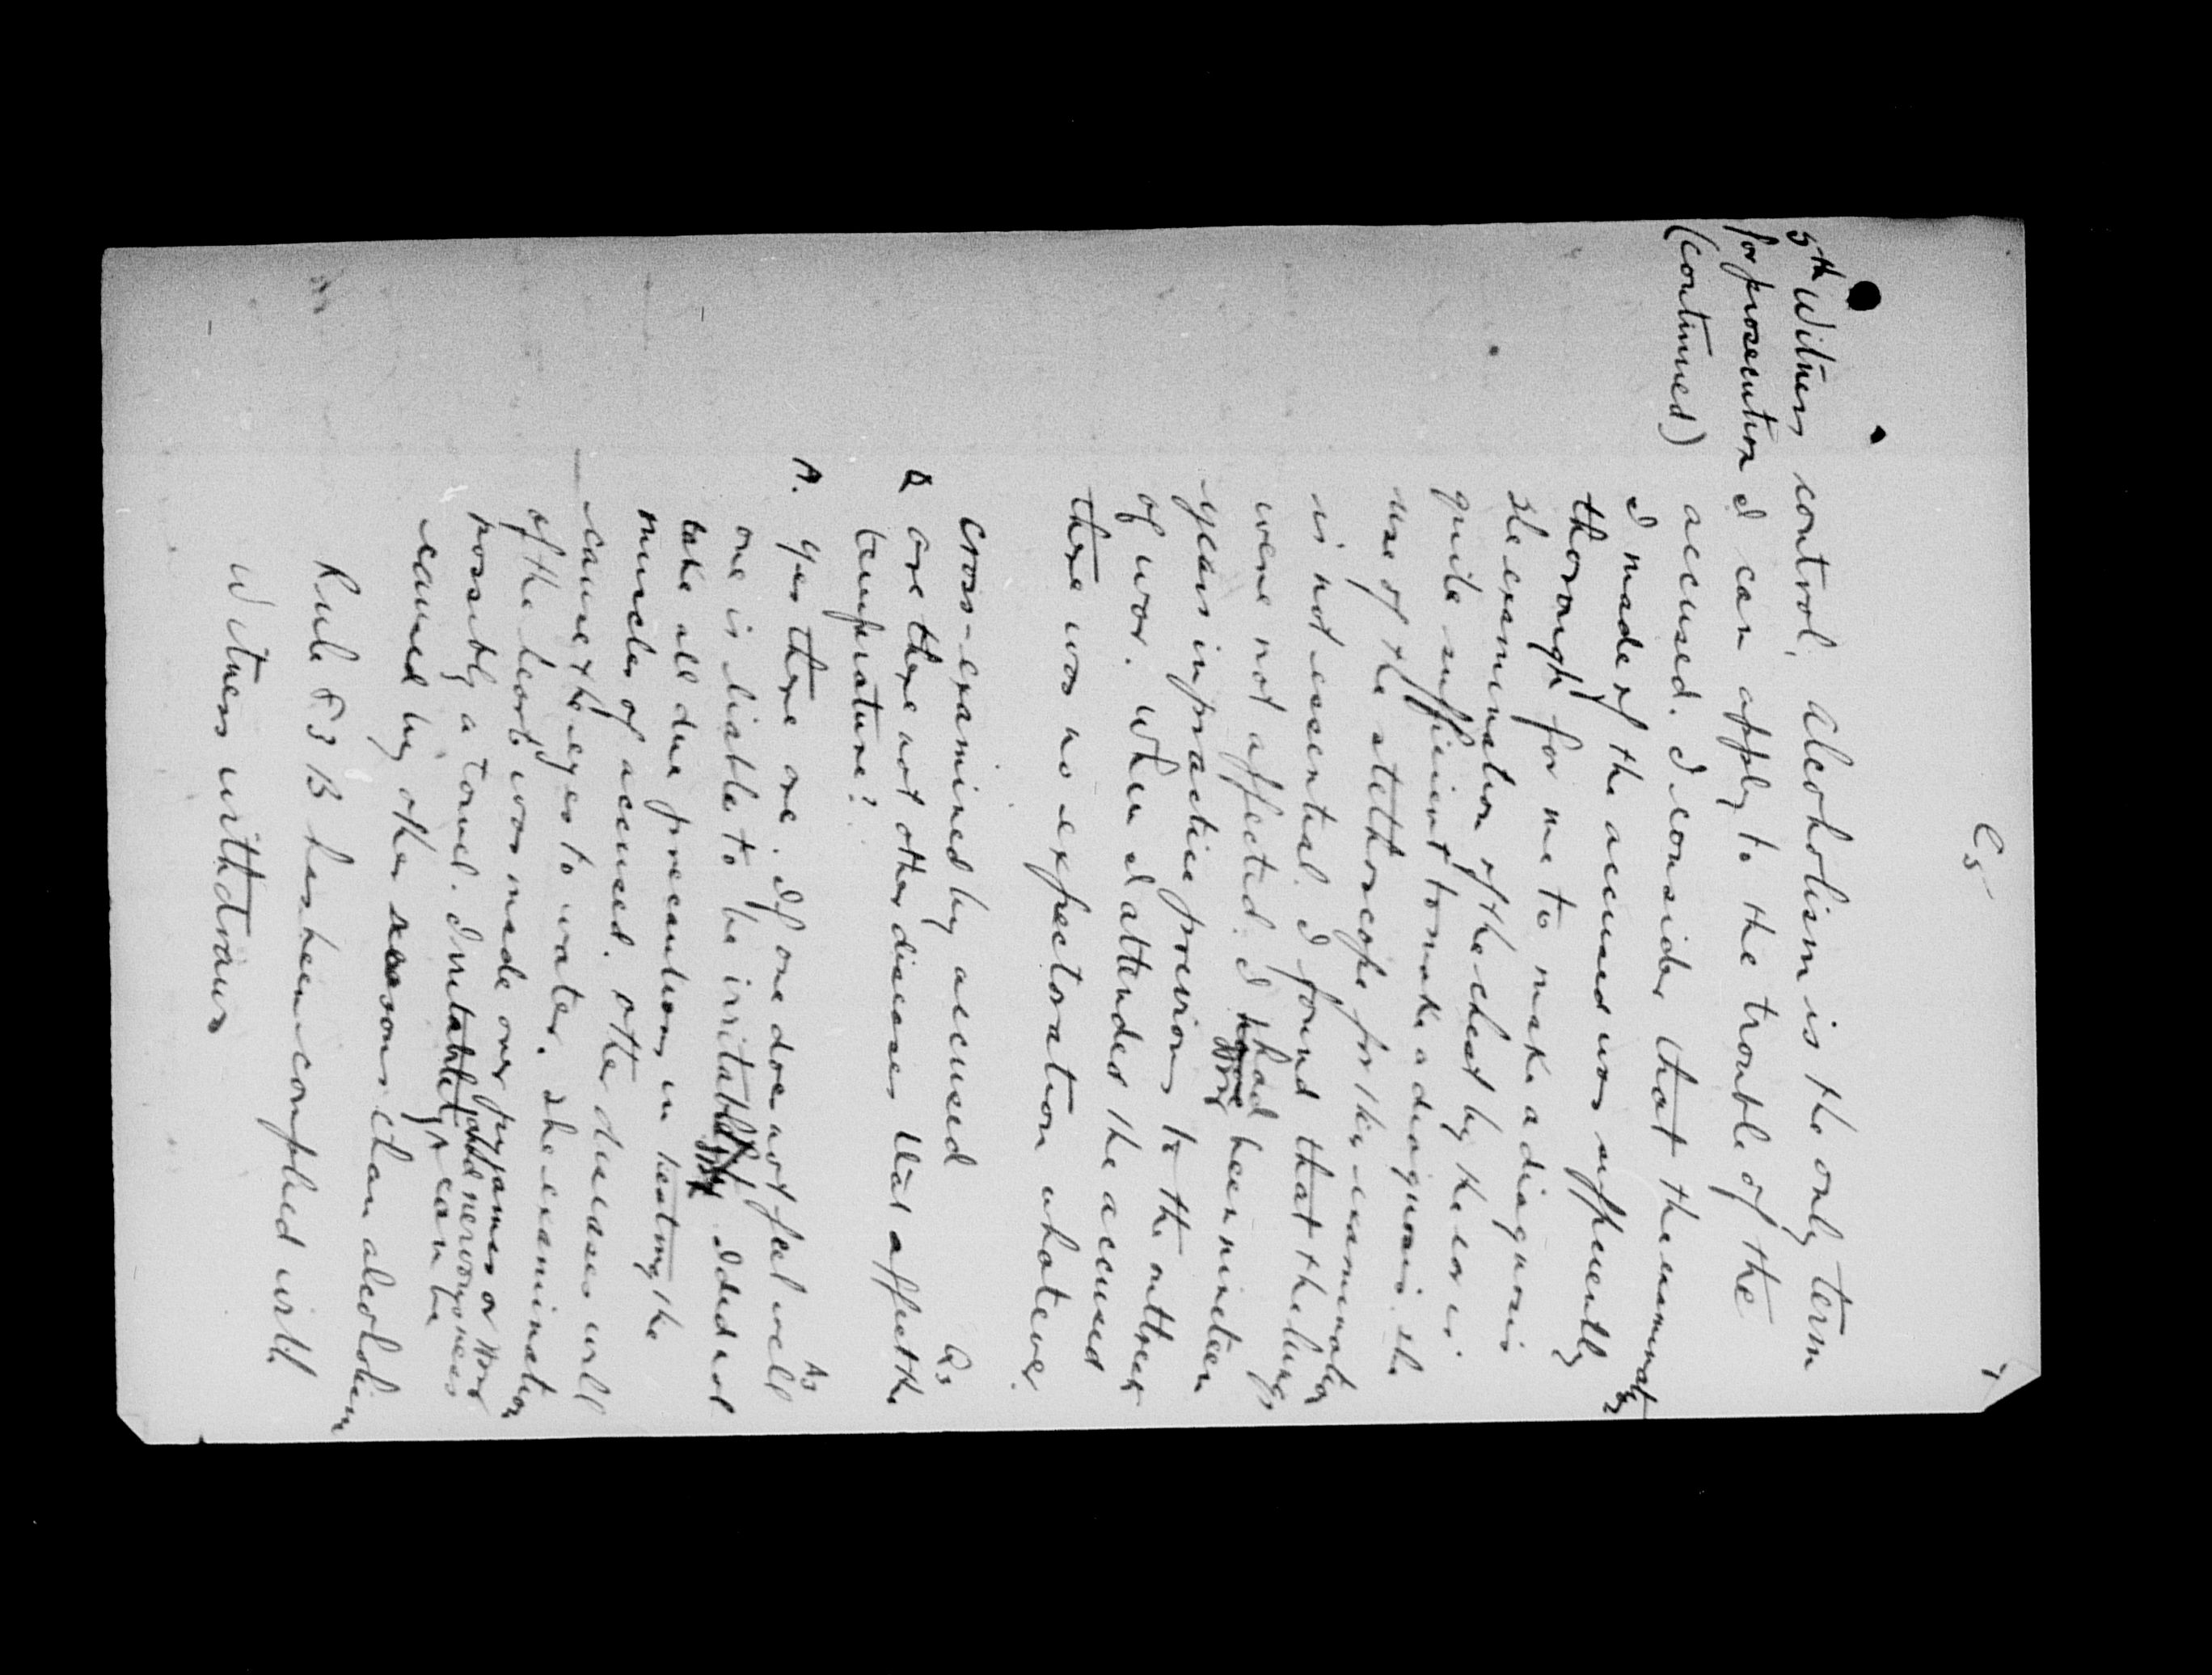 C5
5th Witness
for prosecution
(continued)
control. Alcoholism is the only term
I can apply to the trouble of the
accused. I consider that the examination
I made of the accused was sufficiently
thorough for me to make a diagnosis
The examination of the chest by the ear is
quite sufficient to make a diagnosis. The
use of the stethoscope for the examination
is not essential. I found that the lungs
were not affected. I had been nineteen
years in practice previous to the outbreak
of war. When I attended the accused
there was no expectoration whatever.
Cross-examined by accused
Q are there not other diseases that affect the
temperature?
Q3
A. Yes there are. If one does not feel well
A3
one is liable to be irritable. I did not
take all due precautions in testing the
muscles of accused. Other diseases will
cause the eyes to water. The examination
of the heart was made over pyjamas or
possibly a towel. Irritability and nervousness can be
caused by other reasons than alcoholism
Rule 83 B has been complied with
Witness withdraws